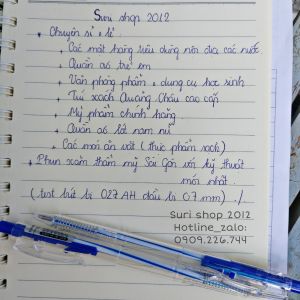 Suri shop 2012
* Chuyên sỉ & lẻ
+ Các mặt hàng tiêu dùng nội địa các nước
+ Quần áo trẻ em
+ Văn phòng phẩm + dụng cụ học sinh
+ Túi xách Quảng Châu cao cấp
+ Mỹ phẩm chính hãng
+ Quần áo lót nam nữ
+ Các món ăn vặt (thực phẩm sạch)
* Phun xăm thẩm mỹ Sài Gòn với kỹ thuật
mới nhất.
(test bút bi 027 AH đầu bi 0.7 mm) ./
Suri shop 2012
Hotline_zalo:
0909.226.744